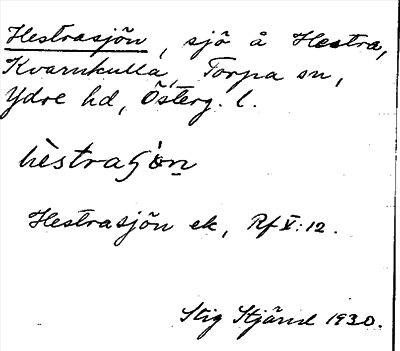 Hestrasjön, sjö å Hestra,
Kvarnkulla, Torpa sn,
Ydre hd, Österg. l.
hèstraʃön
Hestrasjön ek, Rf V:12.
Stig Stjärne 1930.